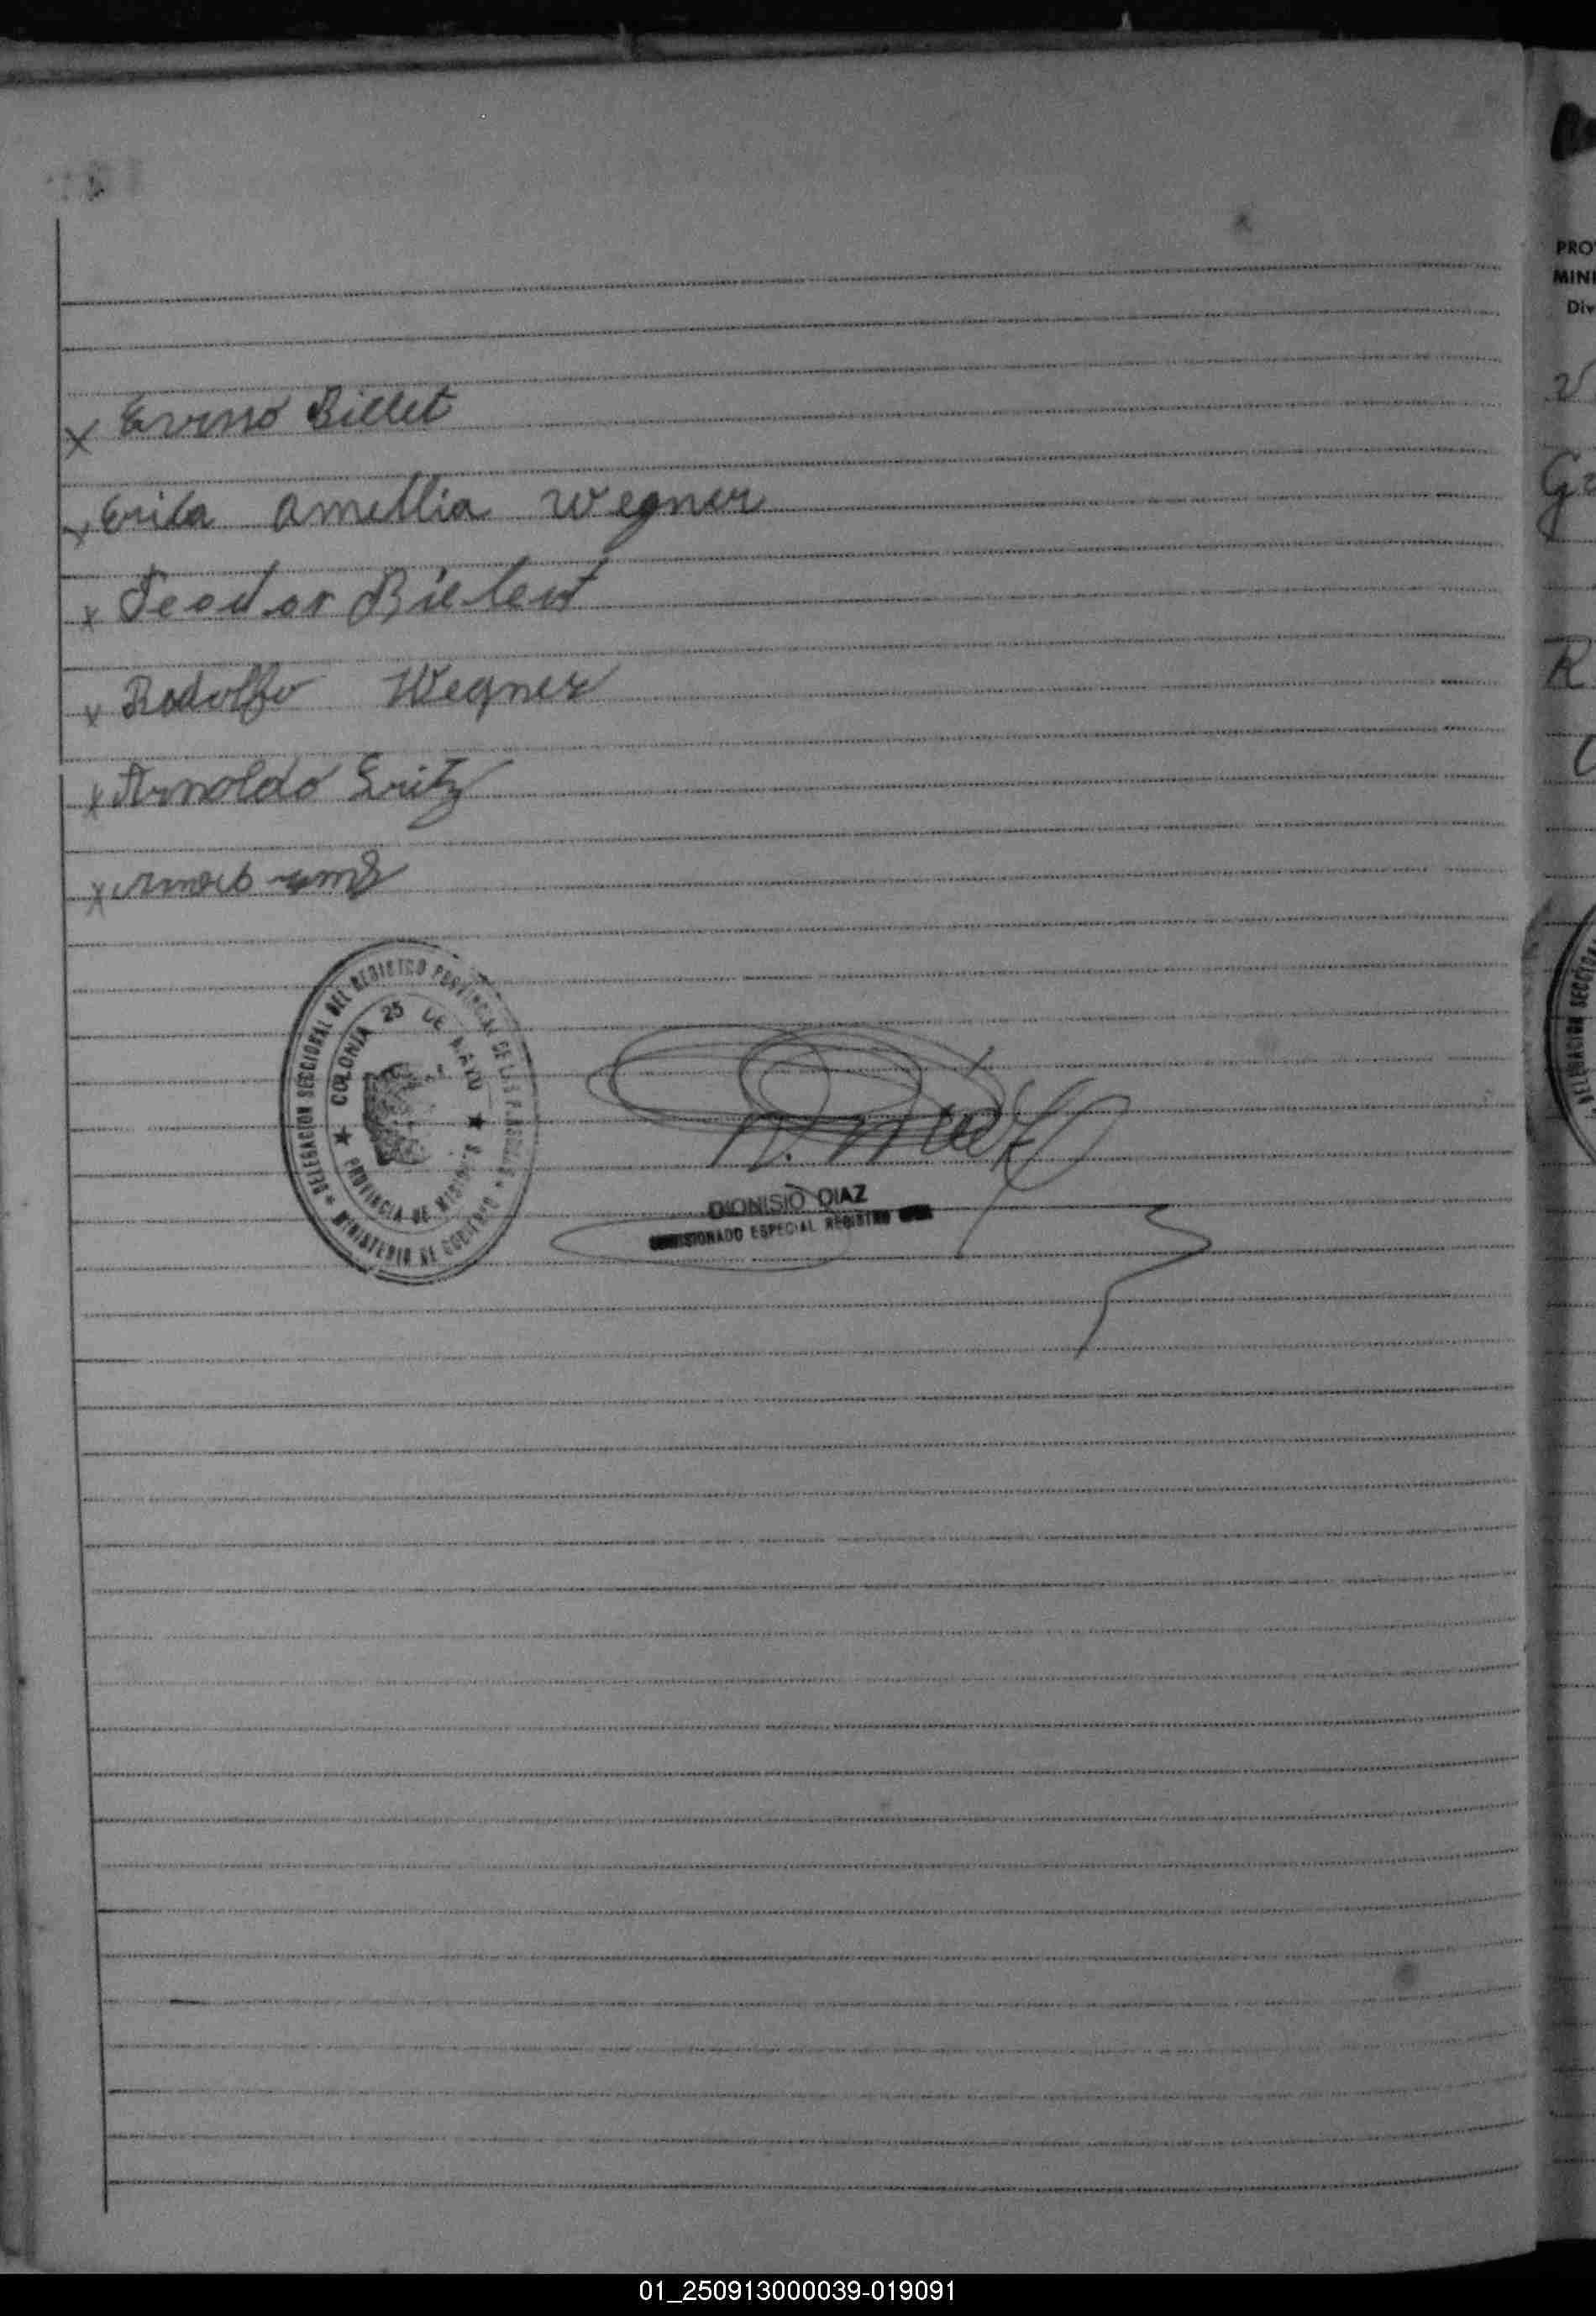 x Ervino Billet
x Erica Amellia Wegner
x Teodor Bielert
x Rodolfo Wegner
x Arnoldo Fritz
x
DELEGACION SECCIONAL DEL REGISTRO PROVINCIAL DE LAS PERSONAS
★ MINISTERIO DE GOBIERNO ★
COLONIA 25 DE MAYO
★ PROVINCIA DE MISIONES ★
D. Diaz
DIONISIO DIAZ
COMISIONADO ESPECIAL REGISTRO CIVIL
PRO
MINI
Div
DELEGACION SECCIONA
01_250913000039-019091